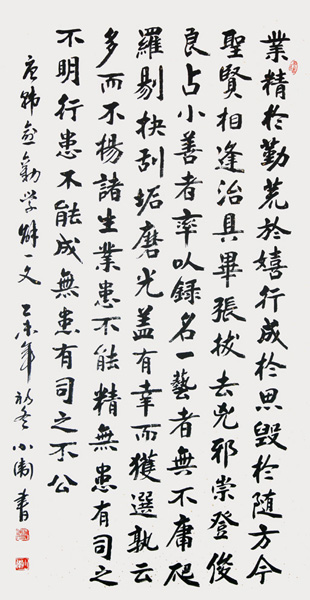 業精於勤荒於嬉行成於思毀於随方今
聖賢相逢治具畢張拔去兇邪崇登俊
良占小善者率以録名一藝者無不庸爬
羅剔抉刮垢磨光盖有幸而獲選孰云
多而不楊諸生業患不能精無患有司之
不明行患不能成無患有司之不公
唐韩愈勸学解一文乙未年初冬小書